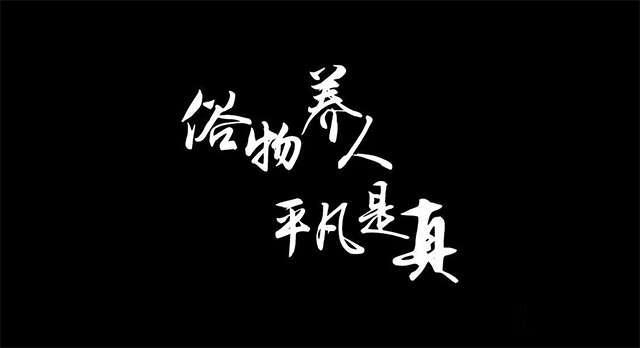 俗物养人
平凡是真